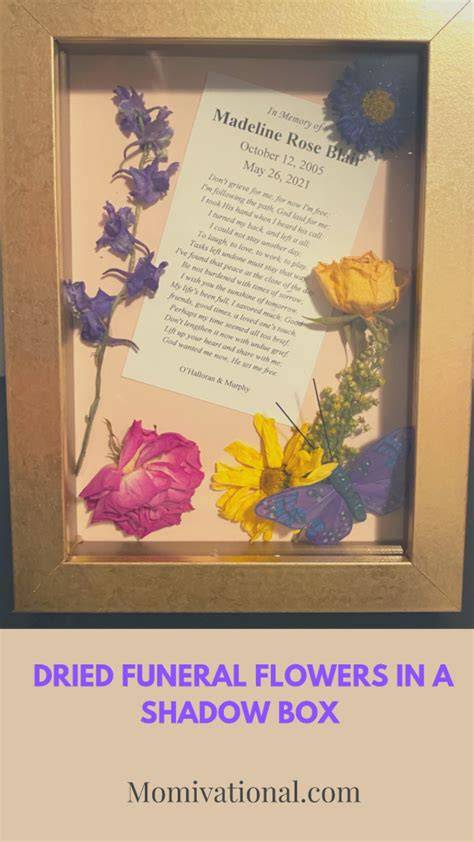 In Memory of
Madeline Rose Blair
October 12, 2005
May 26, 2021
Don't grieve for me, for now I'm free;
I'm following the path, God laid for me:
I took His hand when I heard his call.
I turned my back, and left it all.
I could not stay another day.
To laugh, to love, to work, to play.
Tasks left undone must stay that way
I've found that peace at the close of the day.
Be not burdened with times of sorrow.
I wish you the sunshine of tomorrow.
My life's been full, I savored much, Good
friends, good times, a loved one's touch,
Perhaps my time seemed all too brief.
Don't lengthen it now with undue grief.
Lift up your heart and share with me:
God wanted me now, He set me free.
O'Halloran & Murphy
DRIED FUNERAL FLOWERS IN A
SHADOW BOX
Momivational.com